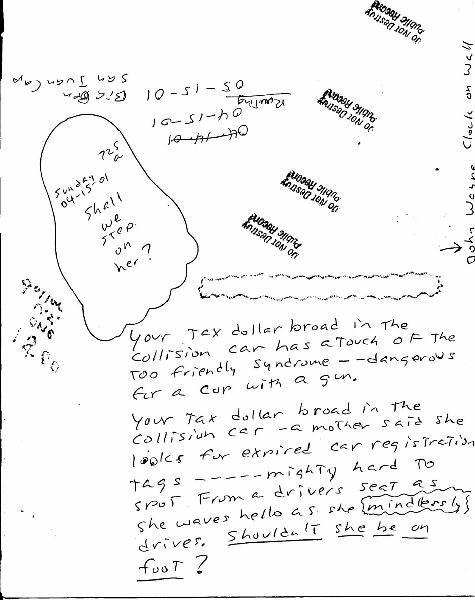 Do Not Destroy
Public Record
John Wayne Clock on wall
San Juan Cap
05-15-01
Routing
04-15-01
04-14-01
Do Not Destroy
Public Record
Do Not Destroy
Public Record
Do Not Destroy
Public Record
725
a
Sunday
04-15-01
Shall
we
step
on
her?
Your Tax dollar broad in The
collision car has a Touch of The
Too friendly Syndrome -- dangerous
for a cop with a gun.
Your Tax dollar broad in the
collision car -a mother said she
looks for expired car registration
Tags -----mighty hard To
spot From a drivers seat as
she waves hello as she {mindlessly}
drives. Shouldn't she be on
foot?